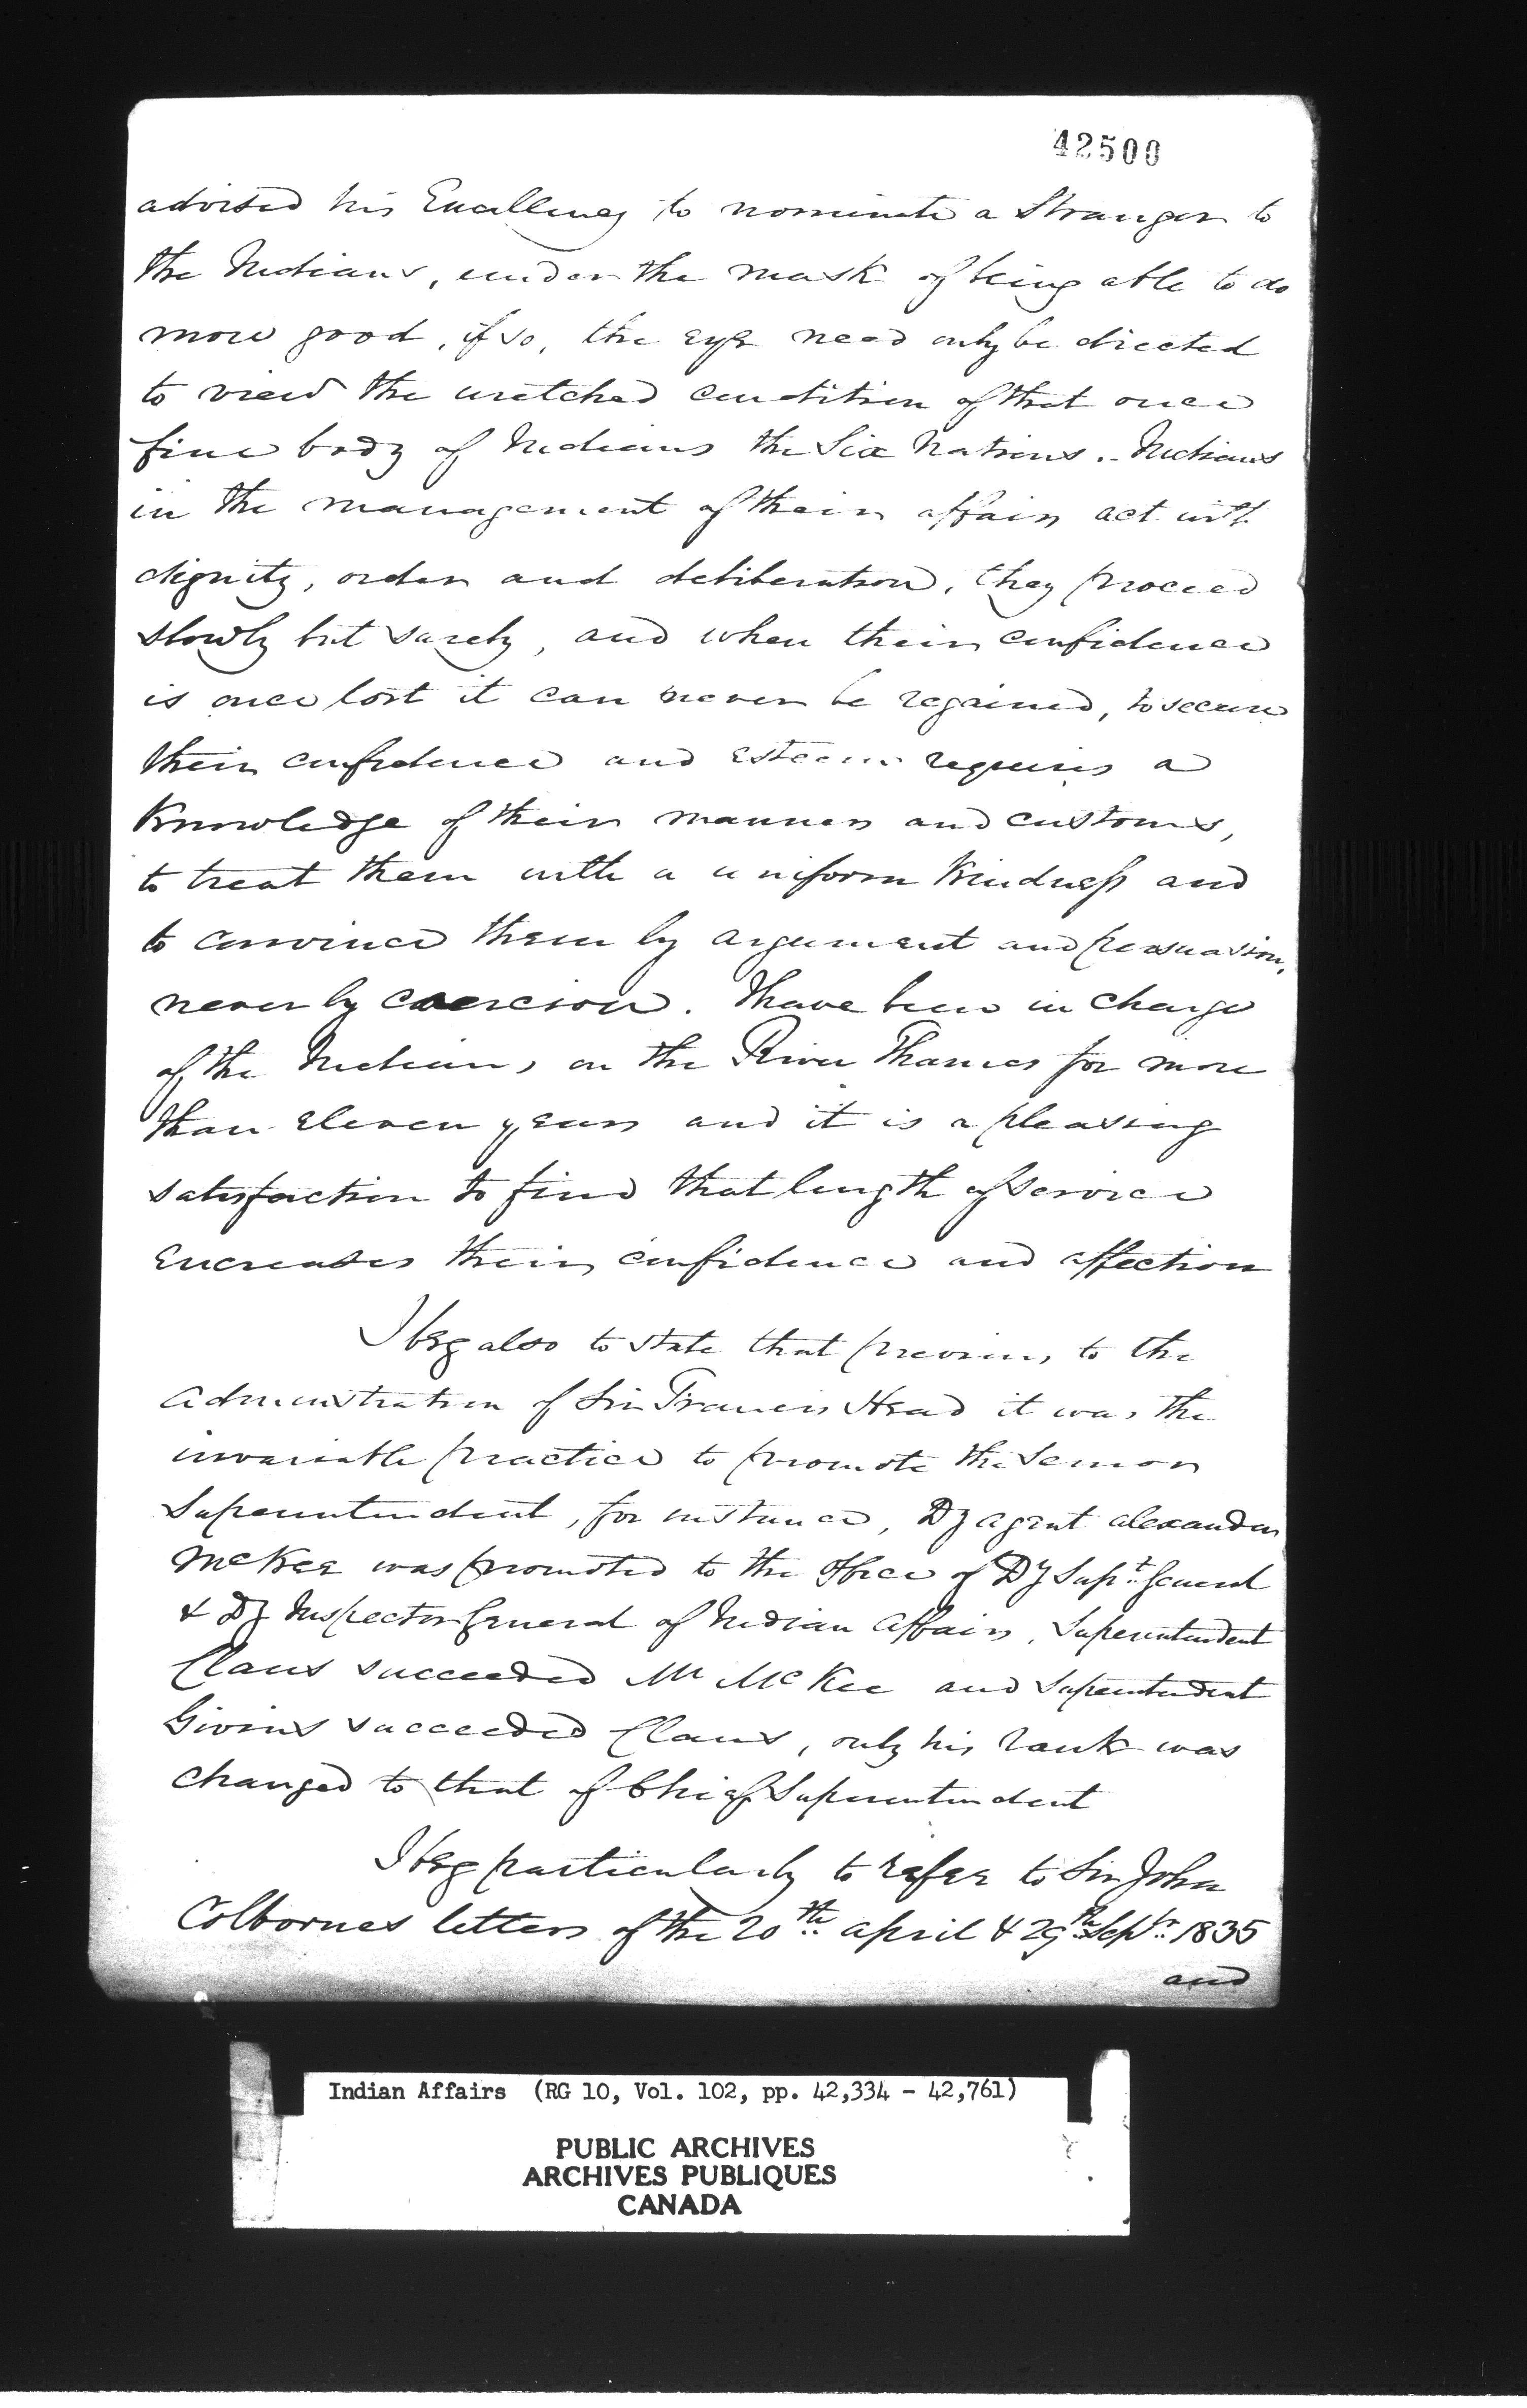 42500
advised his Excellency to nominate a Stranger to
the Indians, under the mask of being able to do
more good, if so, the eye need only be directed
to view the wretched condition of that once
fine body of Indians the Six Nations. Indians
in the management of their affairs act with
dignity, order and deliberation, they proceed
slowly but surely, and when their confidence
is once lost it can never be regained, to secure
their confidence and esteem requires a
Knowledge of their manners and customs,
to treat them with a uniform Kindness and
to convince them by argument and persuasion,
never by coercion. I have been in charge
of the Indians on the River Thames for more
than eleven years and it is a pleasing
satisfaction to find that length of service
encreases their confidence and affection
I beg also to state that previous to the
administration of Sir Francis Head it was the
invariable practice to promote the Senior
Superintendent, for instance, Dy agent alexander
McKee was promoted to the office of Dy Supt. General
& Dy Inspector General of Indian Affairs, Superintendent
Claus succeeded Mr McKee and Superintendent
Givins succeeded Claus, only his rank was
changed to that of Chief Superintendent
I beg particularly to refer to Sir John
Colbornes letters of the 20th april & 29th Septr. 1835
and
Indian Affairs (RG 10, Vol. 102, pp. 42,334 - 42,761)
PUBLIC ARCHIVES
ARCHIVES PUBLIQUES
CANADA